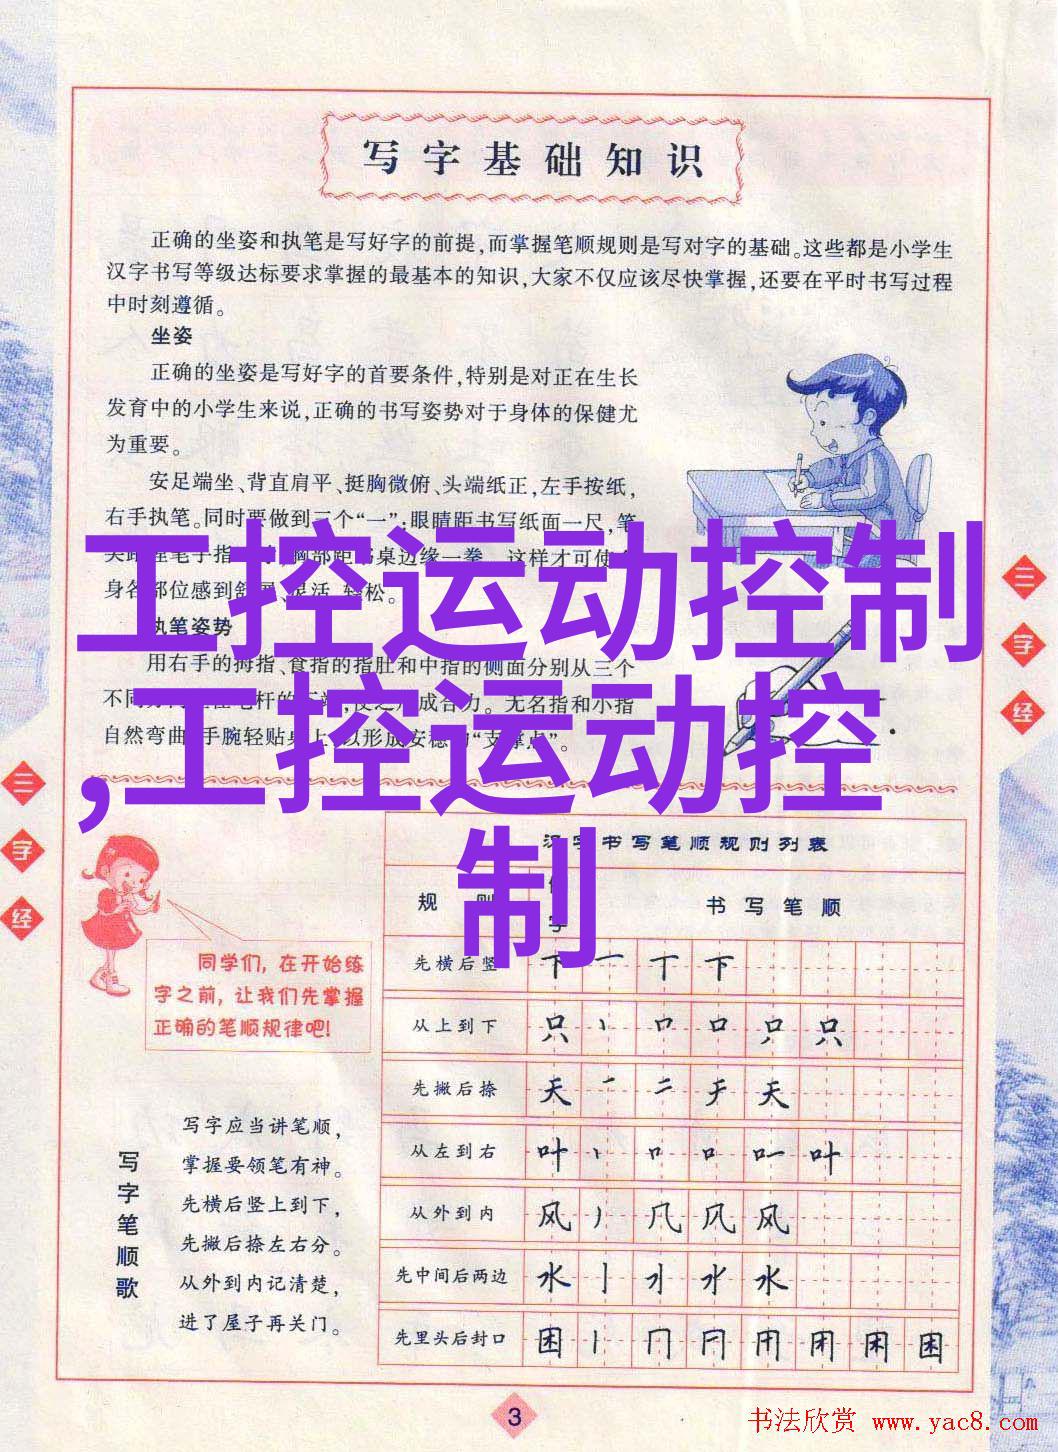 写字基础知识
正确的坐姿和执笔是写好字的前提,而掌握笔顺规则是写对字的基础。这些都是小学生
汉字书写等级达标要求掌握的最基本的知识,大家不仅应该尽快掌握,还要在平时书写过程
中时刻遵循。
坐姿
正确的坐姿是写好字的首要条件,特别是对正在生长
发育中的小学生来说,正确的书写姿势对于身体的保健尤
为重要。
安足端坐、背直肩平、挺胸微俯、头端纸正,左手按纸,
右手执笔。同时要做到三个“一”:眼睛距书写纸面一尺,笔
胸部距 桌边缘一拳。这样才可使
身各部位感到舒 、灵活、轻松。
执笔姿势
用右手的拇指、食指的指肚和中指的侧面分别从三个
不同 成合力。无名指和小指
自然弯曲 手腕轻贴桌上,以形成安稳的“支撑点”。
工控运动控制
,工控运动控
制
三字经
三字经
同学们,在开始练
字之前,让我们先掌握
正确的笔顺规律吧!
写字笔顺歌
写字应当讲笔顺,
掌握要领笔有神。
先横后竖上到下,
先撇后捺左右分。
从外到内记清楚,
进了屋子再关门。
汉字书写笔顺规则列表
规则 例字 书写笔顺
先横后竖 下 一 丅 下
从上到下 只 丶 口 口 只 只
先撇后捺 天 一 二 天
从左到右 叶 丶 口 口 叶
从外到内 风 丿 几 风 风
先中间后两边 水 亅 水
先里头后封口 困 丨 冂 困
3
书法欣赏 www.yac8.com